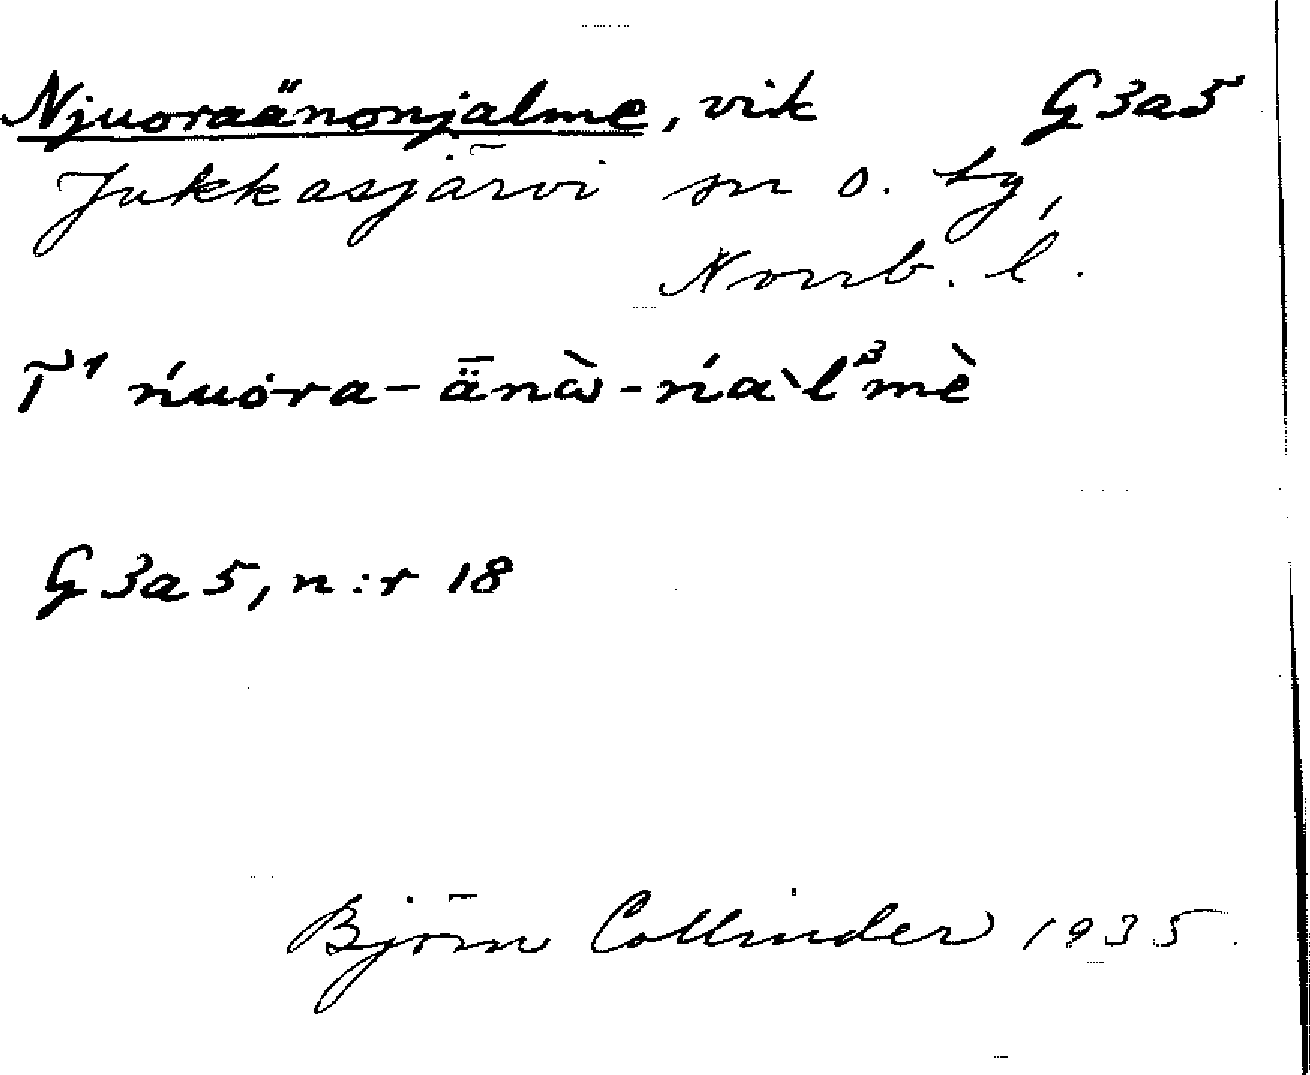 Njuoraänonjalme, vik G3a5
Jukkasjärvi sn o. tg,
Norrb. l.
T¹ ńuo·ra-ǟnὼ-ńa`lᵌmè
G3a5, n:r 18
Björn Collinder 1935.